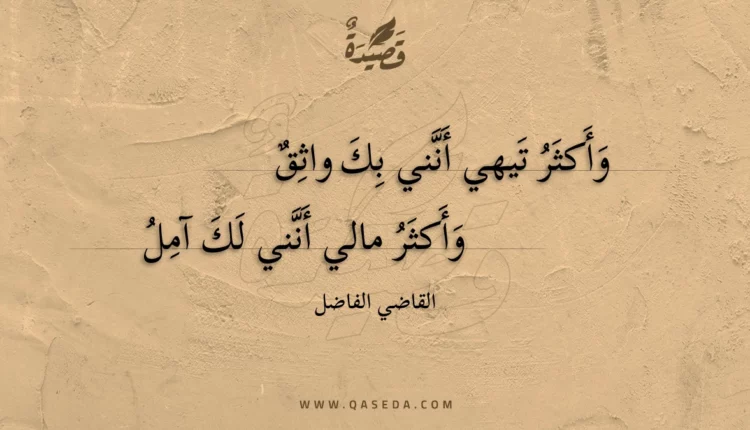 قَصِيدَةٌ
وَأَكثَرُ تَيهي أَنَّني بِكَ واثِقٌ
وَأَكثَرُ مالي أَنَّني لَكَ آمِلُ
القاضي الفاضل
WWW.QASEDA.COM